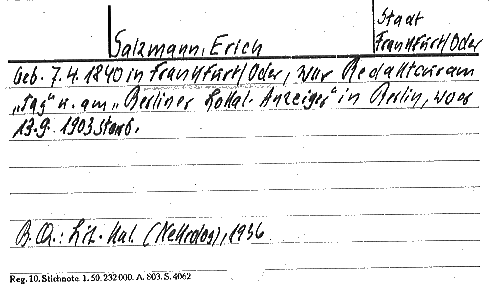 Staat
Salzmann, Erich
Frankfurt/Oder
Geb. 7.4.1840 in Frankfurt/Oder, war Redakteur am
„Tag“ u. am „Berliner Lokal-Anzeiger“ in Berlin, wo er
13.9.1903 starb.
B.Q.: Lit. Kal. (Nekrolog), 1936
Reg. 10. Stichnote. 1. 50. 232 000. A. 803. S. 4062